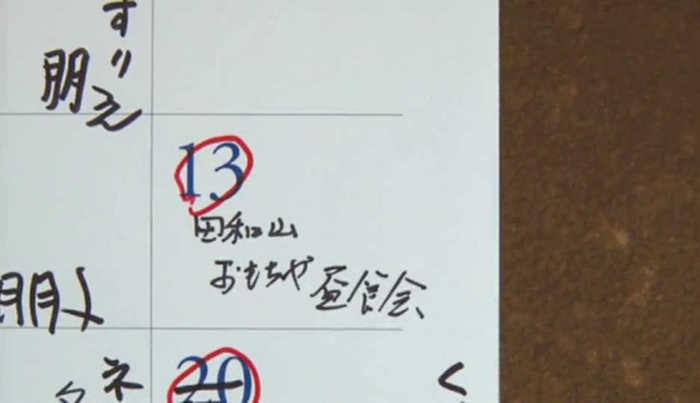 すりえ
朋
13
田和山
おもちゃ 昼食会
朋人
ネ
20
く